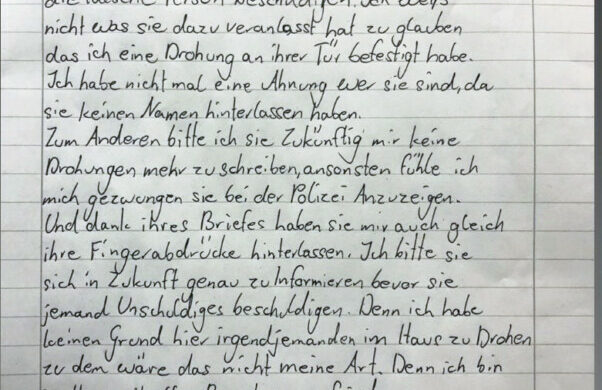 die falsche Person beschuldigen. Ich weis
nicht was sie dazu veranlasst hat zu glauben
das ich eine Drohung an ihrer Tür befestigt habe.
Ich habe nicht mal eine Ahnung wer sie sind, da
sie keinen Namen hinterlassen haben.
Zum Anderen bitte ich sie Zukünftig mir keine
Drohungen mehr zu schreiben, ansonsten fühle ich
mich gezwungen sie bei der Polizei Anzuzeigen.
Und dank ihres Briefes haben sie mir auch gleich
ihre Fingerabdrücke hinterlassen. Ich bitte sie
sich in Zukunft genau zu Informieren bevor sie
jemand Unschuldiges beschuldigen. Denn ich habe
keinen Grund hier irgendjemanden im Haus zu Drohen
zu dem wäre das nicht meine Art. Denn ich bin